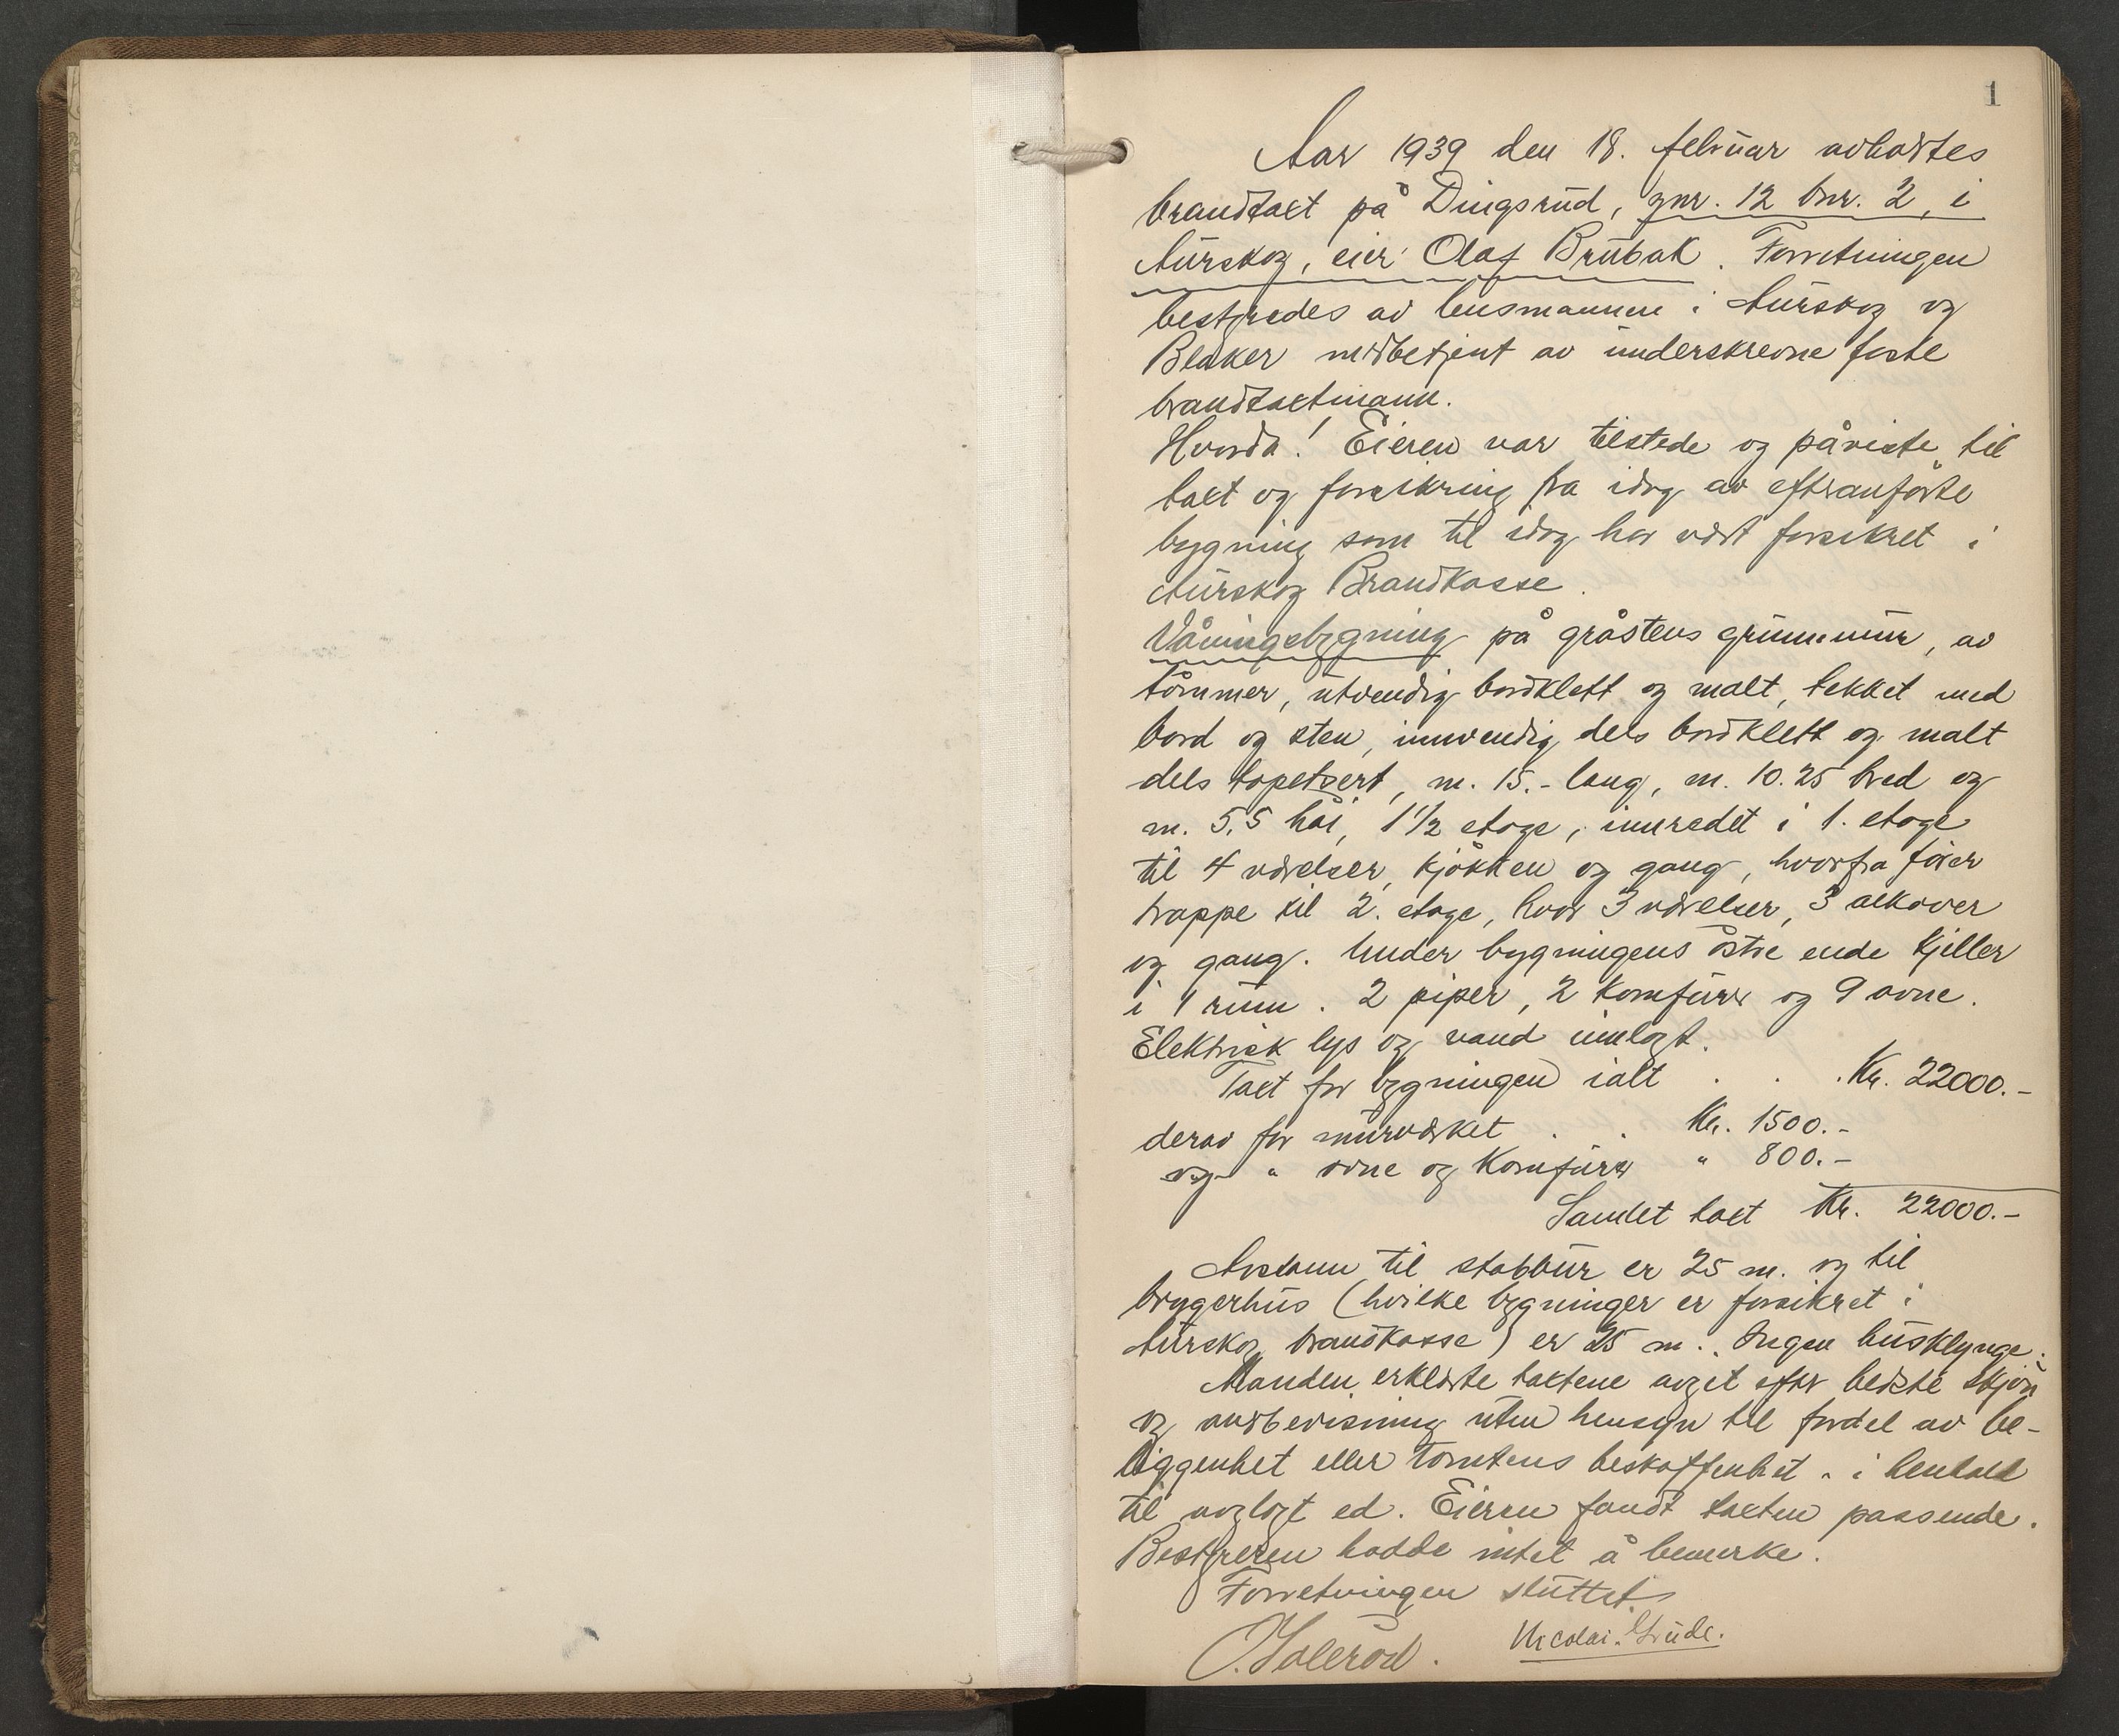 1
Aar 1939 den 18. februar avholdtes
brandtakt på Dingsrud, gnr. 12 bnr. 2, i
Aurskog, eier Olaf Brubak. Forretningen
bestyredes av lensmannen i Aurskog og
Blaker medbetjent av underskrevne faste
brandtaktmann.
Hvorda! Eieren var tilstede og påviste til
takt og forsikring fra idag av efteranførte
bygning som til idag har vært forsikret i
Aurskog Brandkasse.
Våningsbygning på gråstens grunnmur, av
tømmer, utvendig bordklett og malt, tekket med
bord og sten, innvendig dels bordklett og malt
dels tapetsert, m. 15.- lang, m. 10.25 bred og
m. 5,5 høi, 1 1/2 etage, innredet i 1. etage
til 4 værelser, kjøkken og gang, hvorfra fører
trappe til 2. etage, hvor 3 værelser, 3 alkover
og gang. Under bygningens østre ende kjeller
i 1 rum. 2 piper, 2 komfurer og 9 ovne.
Elektrisk lys og vand innlagt.
Takt for bygningen ialt . . . Kr. 22000.-
derav for murværket . . Kr. 1500.-
og " ovne og komfurer " 800.-
Samlet takt Kr. 22000.-
Avstann til stabbur er 25 m. og til
bryggerhus (hvilke bygninger er forsikret i
Aurskog brandkasse) er 25 m.. Ingen husklynge.
Manden erklærte taktene avgit efter bedste skjøn
og overbevisning uten hensyn til fordel av be-
liggenhet eller tomtens beskaffenhet. i henhold
til avlagt ed. Eieren fandt takten passende.
Bestyreren hadde intet å bemerke.
Forretningen sluttet.
Nicolai Grude.